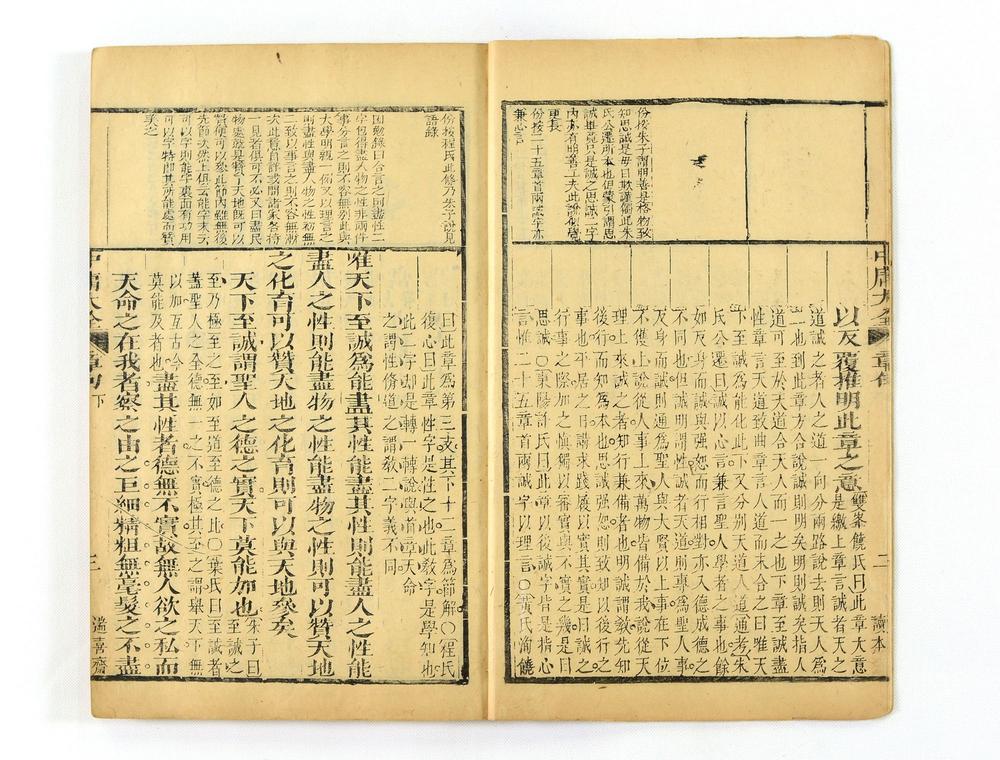 份按朱子謂明善是格物致
知思誠是毋自欺謹獨此朱
氏公遷所本也但蒙引謂思
誠畢竟只是誠之思誠二字
內亦有明善工夫此說似覺
更長
份按二十五章首兩誠字亦
兼心言
以反覆推明此章之意雙峯饒氏曰此章大意
是繳上章言誠者天之
道誠之者人之道一向分兩路說去則天人爲
二也到此章方合說誠則明矣明則誠矣指人
道可至於天道合天人而一之也下章至誠盡
性章言天道致曲章言人道而末合之曰唯天
下至誠爲能化此下又分別天道人道通考朱
氏公遷曰誠以心言兼言聖人學者之事也餘
如反身而誠與強恕而行相對亦入德成德之
不同也誠則明謂性誠者天道則專爲聖人事
反身而誠則通爲聖人與大賢以上事在下位
不獲上說從人事上來萬物皆備於我說從天
理上來誠之者知行兼備者也明誠謂教先知
後行而知爲本也思誠強恕則致知以後行之
事也平居之日謂求踐履以實其實是曰誠之
行事之際加之慎獨以審實與不實之幾是曰
思誠○東陽許氏曰此章以後誠字皆是指心
言惟二十五章首兩誠字以理言○黃氏洵饒
中庸大全
章句
二
讀本
份按程氏此條乃朱子說見
語錄
困勉錄曰合言之則盡性二
字包得盡人物之性非兩件
事分言之則不容無別此與
大學明親一例又以理言之
則盡性與盡人物之性初無
二致以事言之則不容無漸
次此意自詳或問諸家各持
一見者俱可不必又曰盡民
物處就是贊了天地旣可以
贊便可以參此節內雖無後
先節次然上俱云能字末云
可以字則能字裏面有功用
可以字特即其所能處而贊
美之
曰此章爲第三支其下十二章爲節解○程氏
復心曰此章性字是性之也此教字是學知也
此二字却是轉一轉說與首章天命
之謂性脩道之謂教二字義不同
唯天下至誠爲能盡其性能盡其性則能盡人之性能
盡人之性則能盡物之性能盡物之性則可以贊天地
之化育可以贊天地之化育則可以與天地參矣
天下至誠謂聖人之德之實天下莫能加也朱子曰
至誠之
至乃極至之至如至道至德之比○葉氏曰至誠者
蓋聖人之全德無一之不實極其至之謂舉天下無
以加亙古今
莫能及者也盡其性者德無不實故無人欲之私而
天命之在我者察之由之巨細精粗無毫髮之不盡
中庸大全
章句下
三
遵喜齋